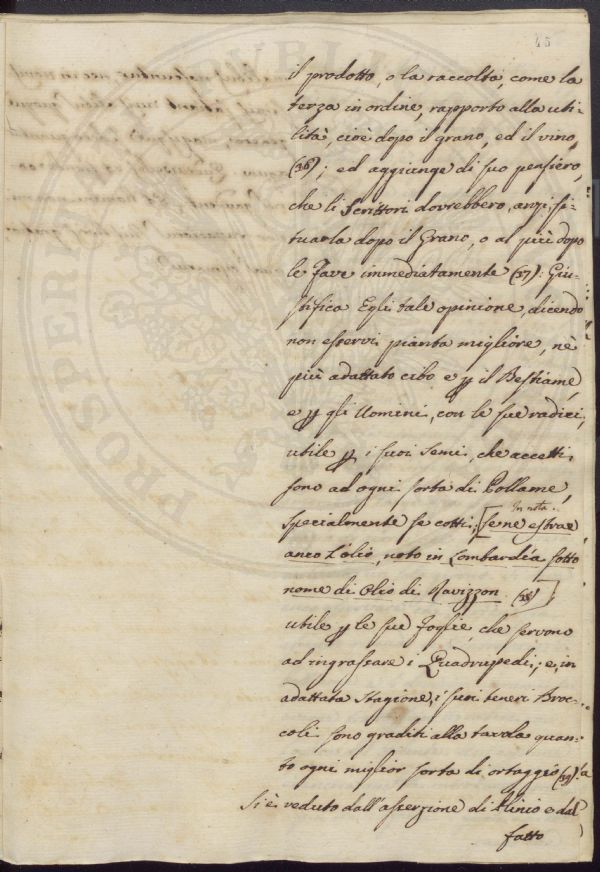 45
il prodotto, o la raccolta, come la
terza in ordine, rapporto alla uti-
lità, cioè dopo il grano, ed il vino,
(36); ed aggiunge di suo pensiero,
che li Scrittori dovrebbero, anzi si-
tuarla dopo il Grano, o al più dopo
le Fave immediatamente (37): Giu-
stifica Egli tale opinione, dicendo
non esservi pianta migliore, nè
più adattato cibo e p il Bestiame,
e p gli Uomini, con le sue radici,
utile p i suoi semi, che accetti
sono ad ogni sorta di Pollame,
In nota.
specialmente se cotti; [se ne estrae
anco l'olio, noto in Lombardia sotto
nome di Olio di Ravizzon (38)]
utile p le sue foglie, che servono
ad ingrassare i Quadrupedi; e in
adattata stagione, i suoi teneri Broc-
coli sono graditi alla tavola quan-
to ogni miglior sorta di ortaggio (39)
Si è veduto dall'asserzione di Plinio e dal
fatto
PROSPERI